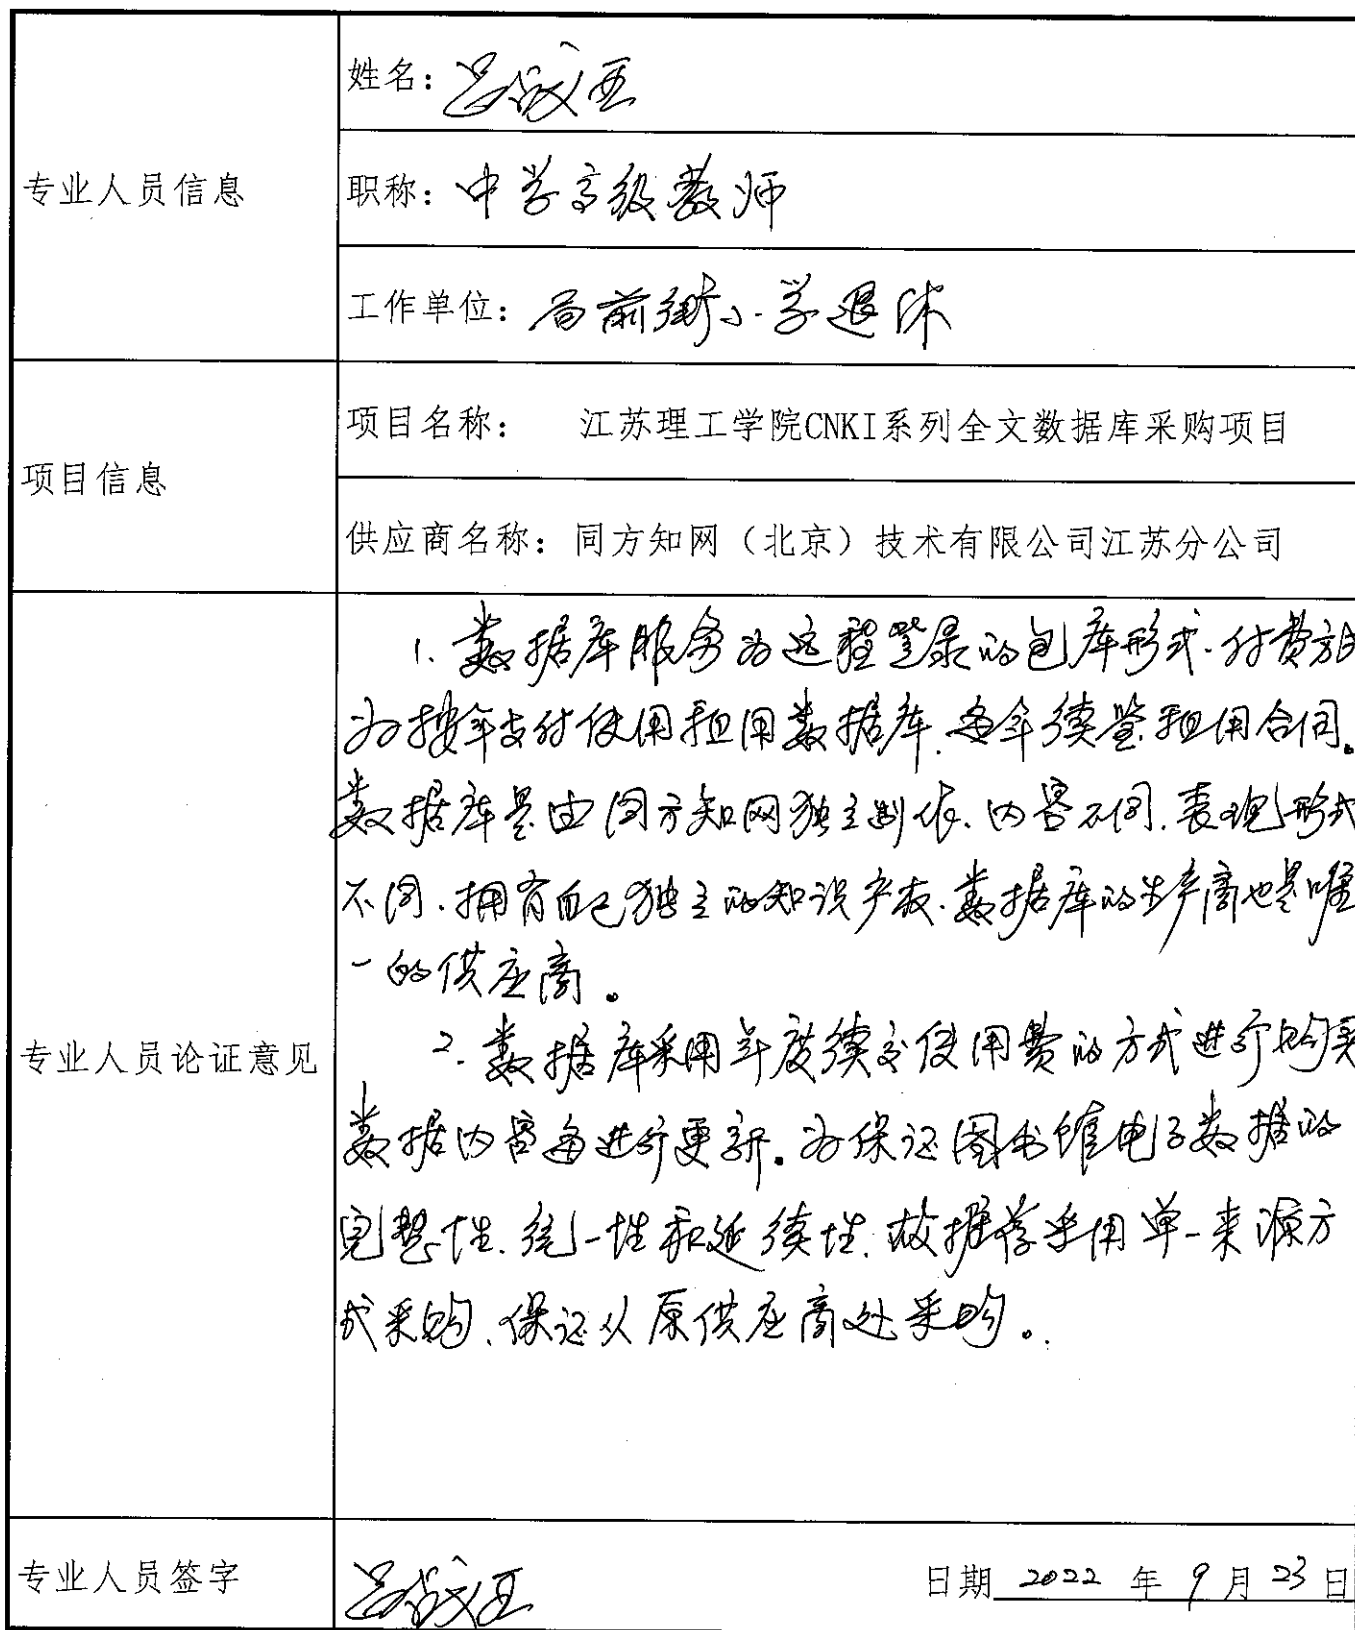 姓名：吕
专业人员信息
职称：中学高级教师
工作单位：局前街小学退休
项目名称： 江苏理工学院CNKI系列全文数据库采购项目
项目信息
供应商名称：同方知网（北京）技术有限公司江苏分公司
1.数据库服务为远程登录的包库形式.付费方式
为按年支付使用租用数据库.每年续签租用合同。
数据库是由同方知网独立制作.内容不同.表现形式
不同.拥有自己独立的知识产权.数据库的生产商也是唯
一的供应商。
专业人员论证意见
2.数据库采用年度续交使用费的方式进行购买
数据内容每进行更新.为保证图书馆电子数据的
完整性.统一性和延续性.故推荐采用单一来源方
式采购.保证从原供应商处采购。
专业人员签字
日期 2022 年 9 月 23 日